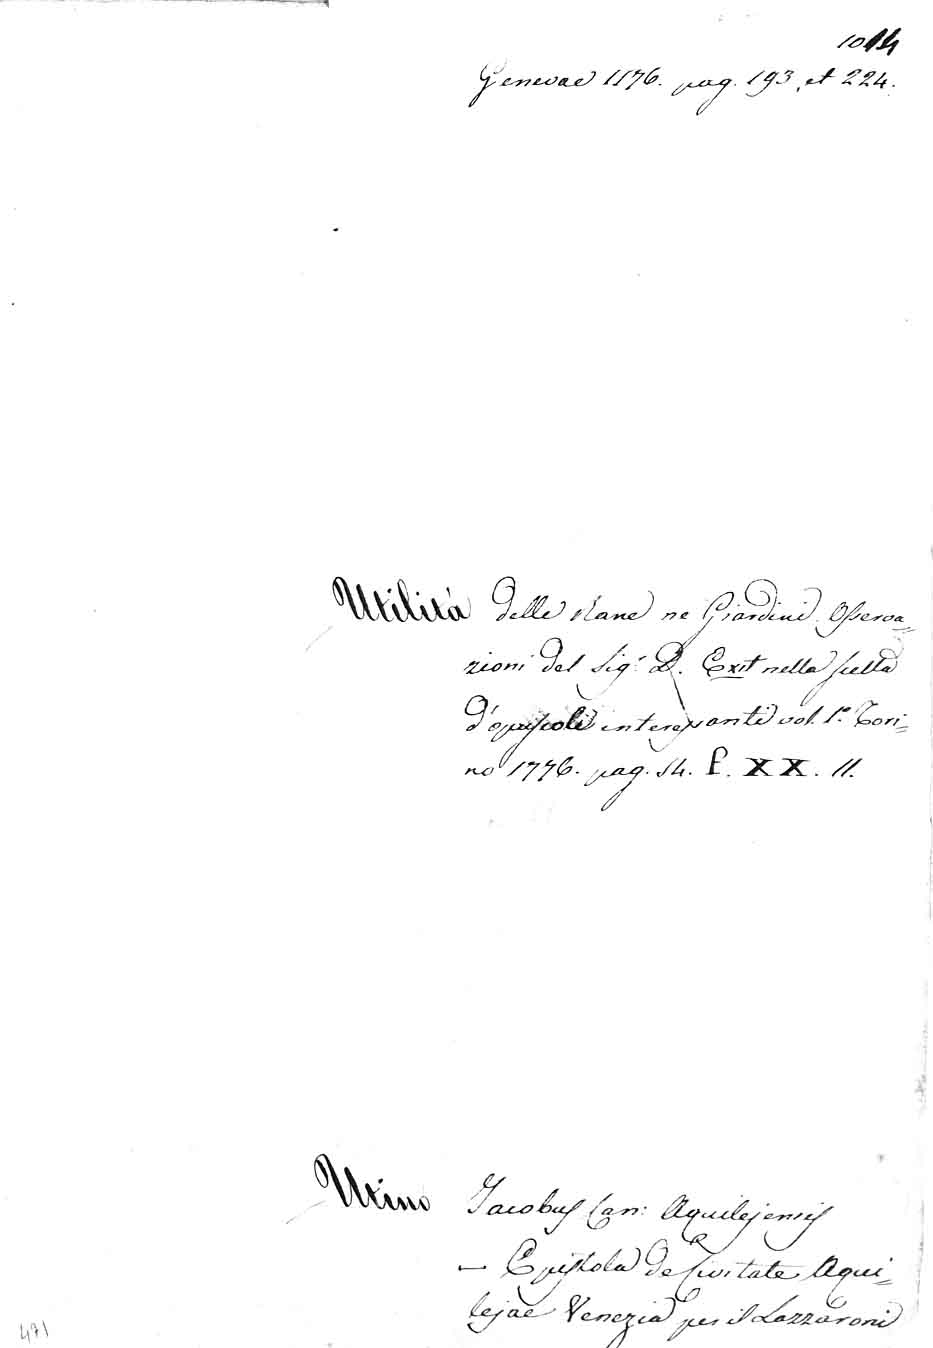 1014
Genevae 1176. pag. 193, et 224.
Utilitá delle Rane ne Giardini. Osserva=
zioni del Sig.r D. Exit nella scelta
d'opuscoli interessanti vol. 1.o Tori=
no 1776. pag. 14. P. XX. 11.
Utino Jacobus Can: Aquilejensis
— Epistola de Civitate Aqui=
lejae Venezia per il Lazzaroni
471